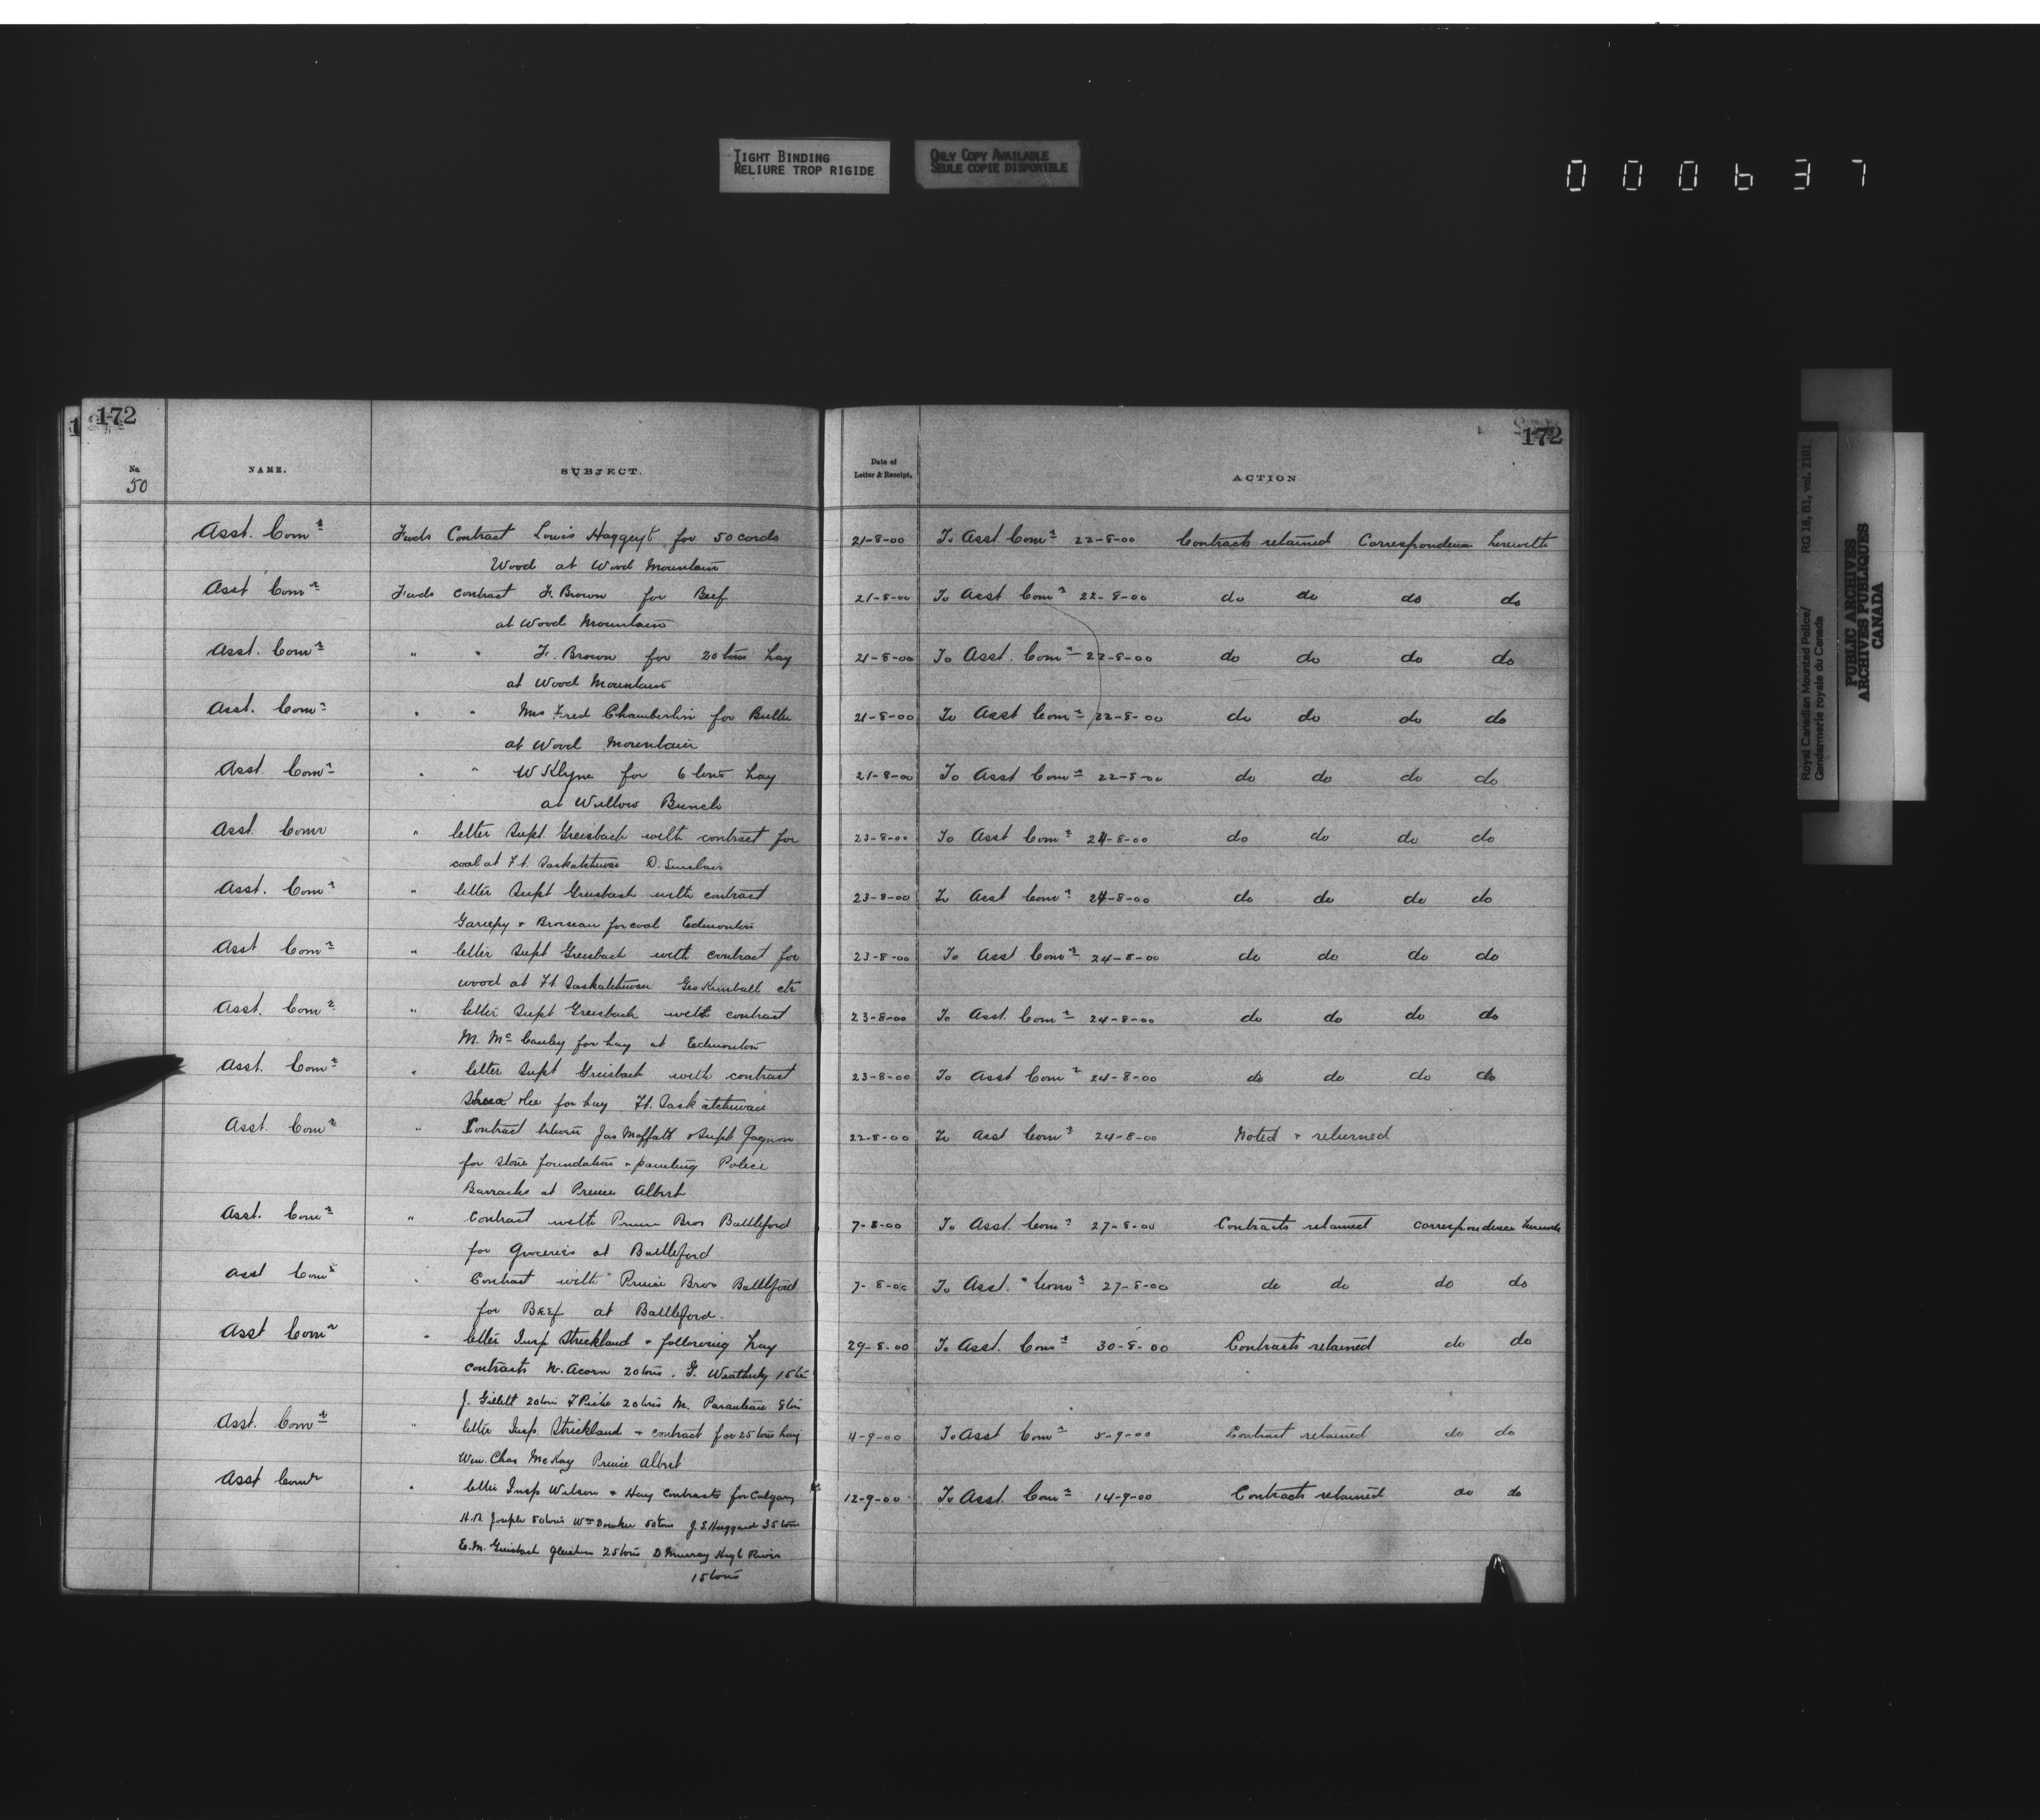 TIGHT BINDING
RELIURE TROP RIGIDE
ONLY COPY AVAILABLE
SEULE COPIE DISPONIBLE
000637
Royal Canadian Mounted Police/ RG 18, B1, vol. 2101
Gendarmerie royale du Canada
PUBLIC ARCHIVES
ARCHIVES PUBLIQUES
CANADA
172 172
No NAME. SUBJECT. Date of Letter & Receipt, ACTION
50
Asst. Comr Fwds Contract Louis Haggeyt for 50 cords 21-8-00 To Asst Comr 22-8-00 Contracts retained Correspondence herewith
Wood at Wood Mountain
Asst Comr Fwds contract F. Brown for Beef 21-8-00 To Asst Comr 22-8-00 do do do do
at Wood Mountain
Asst. Comr " " F. Brown for 20 tons hay 21-8-00 To Asst. Comr 22-8-00 do do do do
at Wood Mountain
Asst. Comr " " Mrs Fred Chamberlin for Butter 21-8-00 To Asst Comr 22-8-00 do do do do
at Wood Mountain
Asst. Comr " " W Klyne for 6 tons hay 21-8-00 To Asst Comr 22-8-00 do do do do
at Willow Bunch
Asst. Comr " letter Supt. Greisbach with contract for 23-8-00 To Asst Comr 24-8-00 do do do do
coal at Ft. Saskatchewan D. Sinclair
Asst. Comr " letter Supt Greisbach with contract 23-8-00 To Asst Comr 24-8-00 do do do do
Gariepy + Broseau for coal Edmonton
Asst Comr " letter Supt Greisbach with contract for 23-8-00 To Asst Comr 24-8-00 do do do do
wood at Ft. Saskatchewan Geo Kimball etc
Asst. Comr " letter Supt Greisbach with contract 23-8-00 To Asst. Comr 24-8-00 do do do do
M. Mc Cauley for hay at Edmonton
Asst. Comr " letter Supt Greisbach with contract 23-8-00 To Asst Comr 24-8-00 do do do do
for hay Ft. Saskatchewan
Asst. Comr " Contract between Jas Moffatt & Supt Gagnon 22-8-00 To Asst Comr 24-8-00 Noted + returned
for stone foundation + painting Police
Barracks at Prince Albert
Asst. Comr " Contract with Prince Bros Battleford 7-8-00 To Asst. Comr 27-8-00 Contracts retained correspondence herewith
for Groceries at Battleford
Asst Comr " Contract with Prince Bros Battleford 7-8-00 To Asst. Comr 27-8-00 do do do do
for Beef at Battleford.
Asst Comr " letter Insp Strickland + following hay 29-8-00 To Asst. Comr 30-8-00 Contracts retained do do
contracts W. Acorn 20 tons. G. Weatherby 15 tons
J. Gillett 20 tons 20 tons M. Paranteau 8 tons
Asst. Comr " letter Insp. Strickland + contract for 25 tons hay 4-9-00 To Asst Comr 5-9-00 Contract retained do do
Wm. Chas McKay Prince Albert
Asst Comr " letter Insp Wilson + Hay contracts for Calgary 12-9-00 To Asst. Comr 14-9-00 Contracts retained do do
50 tons Wm 50 tons J.S. Haggard 35 tons
E.M. Greisbach Gleichen 25 tons D Murray High River
15 tons